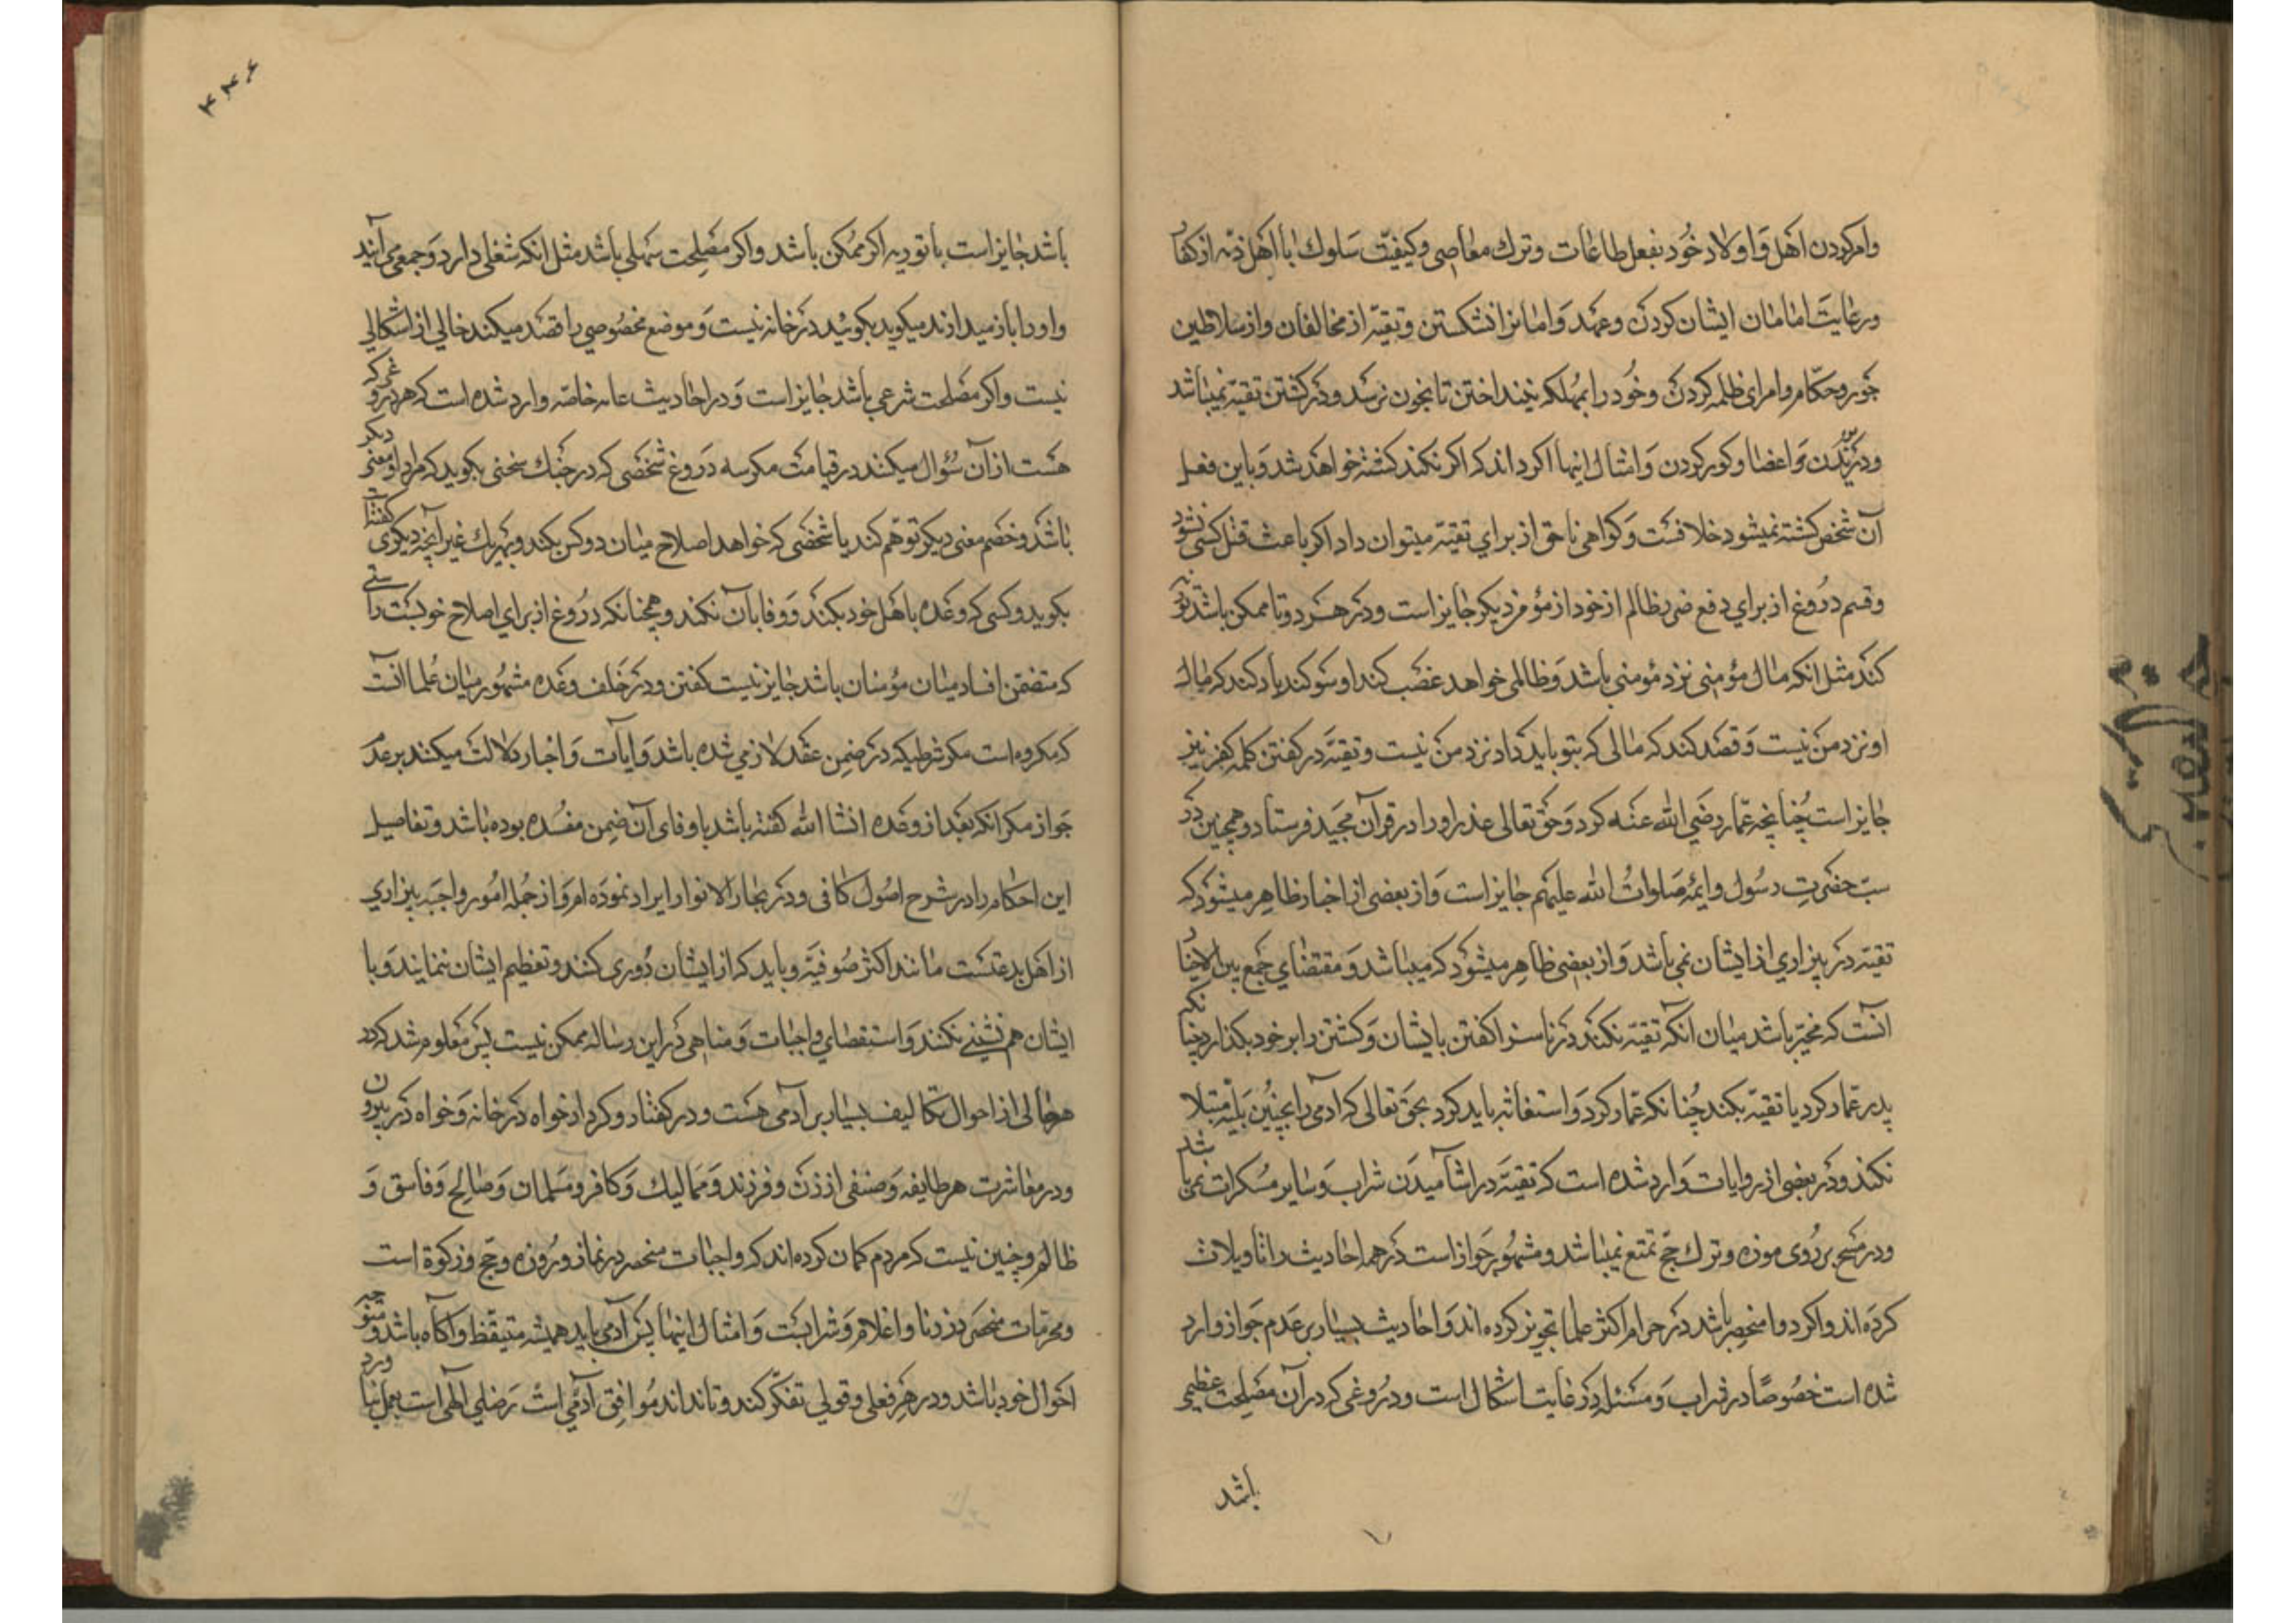 وامر کردن اهل و اولاد خود بفعل طاعات و ترك معاصی و کیفیت سلوك با اهل ذمه از کفار
و رعایت امانان ایشان کردن و عهد و امانرا نشکستن و تقیه از مخالفان و از سلاطین
جور و حکام و امرای ظلمه کردن و خود را بمهلکه نینداختن تا بخون نرسد و در کشتن تقیه نمیباشد
و در بریدن اعضا و کور کردن و امثال اینها اکر داند که اکر نکند کشته خواهد شد و باین فعل
آن شخص کشته نمیشود خلافست و کواهی ناحق از برای تقیه میتوان داد اکر باعث قتل کسی نشود
و قسم دروغ از برای دفع ضرر ظالم از خود از مؤمن دیکر جایز است و در هر دو تا ممکن باشد توریه
کند مثل انکه مال مؤمنی نزد مؤمنی باشد و ظالمی خواهد غضب کند او سوکند یاد کند که مال
او نزد من نیست و قصد کند که مالی که بتو باید داد نزد من نیست و تقیه در کفتن کلمه کفر نیز
جایز است چنانچه عمار رضی الله عنه کرد و حق تعالی عذر او را در قرآن مجید فرستاد و همچنین در
سب حضرت رسول و ایمه صلوات الله علیهم جایز است و از بعضی از اخبار ظاهر میشود که
تقیه در بیزاری از ایشان نمی باشد و از بعضی ظاهر میشود که میباشد و مقتضای جمع بین الاخبار
آنست که مخیر باشد میان انکه تقیه نکند در ناسزا کفتن بایشان و کشتن را بر خود بکذارد چنانکه
پدر عمار کرد یا تقیه بکند چنانکه عمار کرد و استغاثه باید کرد بحق تعالی که ادمی را بچنین بلیه مبتلا
نکند و در بعضی از روایات وارد شده است که تقیه در اشامیدن شراب و سایر مسکرات نمی باشد
و در مسح بر روی موزه و ترك حج تمتع نمیباشد و مشهور جواز است در همه احادیث را تاویلات
کرده اند و اکر دوا منحصر باشد در حرام اکثر علما تجویز کرده اند و احادیث بسیار بر عدم جواز وارد
شده است خصوصا در شراب و مسئله در غایت اشکال است و دروغی که در آن مصلحت عظیمی
باشد
۴۴۶
باشد جایز است با توریه اکر ممکن باشد و اکر مصلحت سهلی باشد مثل انکه شغلی دارد و جمعی می آیند
و او را باز میدارند میکوید بکوئید در خانه نیست و موضع مخصوصی را قصد میکند خالی از اشکالی
نیست و اکر مصلحت شرعی باشد جایز است و در احادیث عامه خاصه وارد شده است که هر دروغی که
هست از آن سؤال میکنند در قیامت مکر سه دروغ شخصی که در جنك سخنی بکوید که مراد او معنی دیکر
باشد و خصم معنی دیکر توهم کند یا شخصی که خواهد اصلاح میان دو کس بکند و بهریك غیر آنچه دیکری کفته است
بکوید و کسی که وعده با اهل خود بکند و وفا بآن نکند و همچنانکه دروغ از برای اصلاح خوبست راستی
که متضمن افساد میان مؤمنان باشد جایز نیست کفتن و در خلف وعده مشهور میان علما آنست
که مکروه است مکر شرطیکه در ضمن عقد لازمی شده باشد و ایات و اخبار دلالت میکند بر عدم
جواز مکر انکه بعد از وعده انشا الله کفته باشد یا وفای آن ضمن مفسده بوده باشد و تفاصیل
این احکام را در شرح اصول کافی و در بحار الانوار ایراد نموده ام و از جمله امور واجبه بیزاری
از اهل بدعتست مانند اکثر صوفیه و باید که از ایشان دوری کنند و تعظیم ایشان ننمایند و با
ایشان هم نشینی نکنند و استقصای واجبات و مناهی در این رساله ممکن نیست پس معلوم شد که در
هر حالی از احوال تکالیف بسیار بر آدمی هست و در کفتار و کردار خواه در خانه و خواه در بیرون
و در معاشرت هر طایفه و صنفی از زن و فرزند و ممالیك و کافر و مسلمان و صالح و فاسق و
ظالم و چنین نیست که مردم کمان کرده اند که واجبات منحصر در نماز و روزه و حج و زکوة است
و محرمات منحصر در زنا و اغلام و شرابست و امثال اینها پس آدمی باید همیشه متیقظ و آکاه باشد و متوجه
احوال خود باشد و در هر فعلی و قولی تفکر کند و تا نداند موافق رضای الهی است بعمل نیاورد